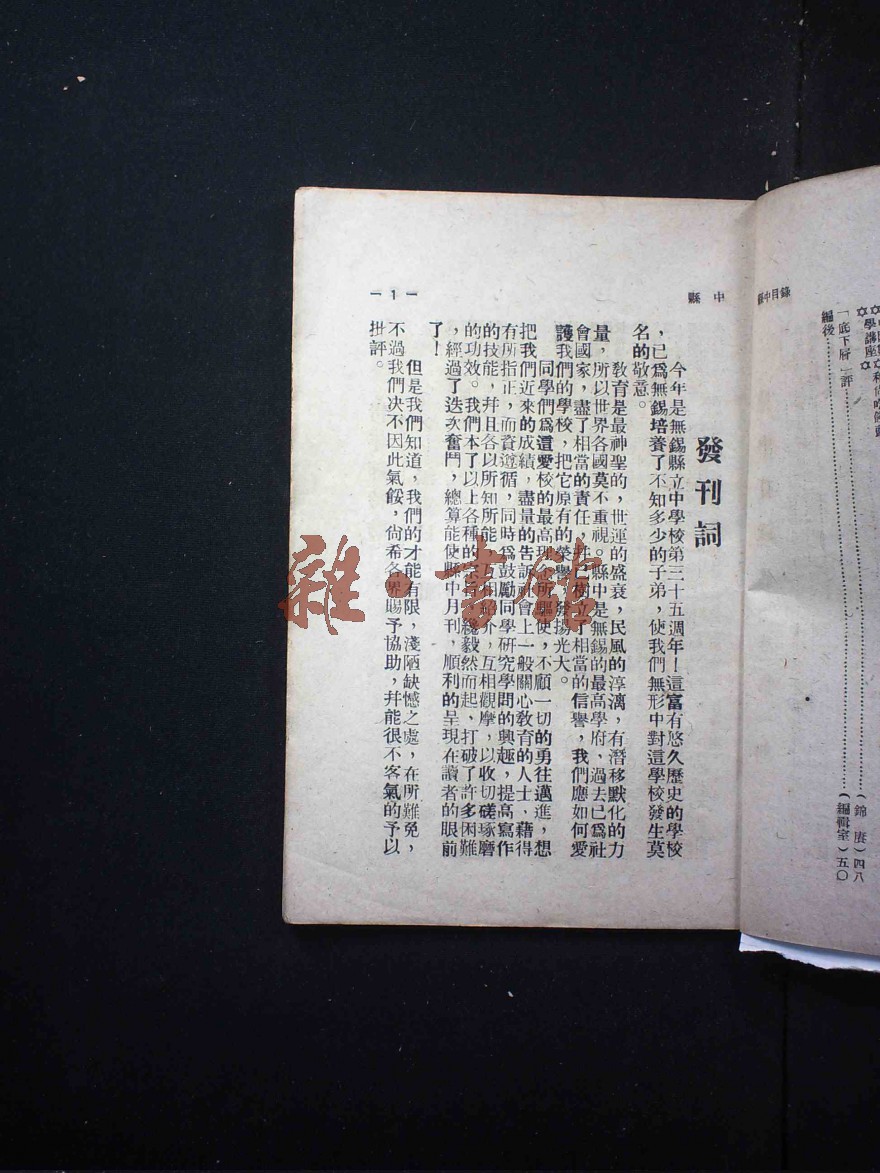 縣中目錄
學講座
「底下層」評……(錦賡)四八
編後……(編輯室)五〇
縣中
發刊詞
今年是無錫縣立中學校第三十五週年!這富有悠久歷史的學校
,已爲無錫培養了不知多少的子弟,使我們無形中對這學校發生莫
名的敬意。
教育是最神聖的,世運的盛衰,民風的淳漓,有潛移默化的力
量,所以世界各國莫不重視。縣中是無錫的最高學府,過去已爲社
會國家,盡了相當的責任,並已樹立了相當的信譽,我們應如何愛
護我們的學校,把它原有的榮譽,發揚光大。
同學們爲這愛校的最高理所驅使,不顧一切的勇往邁進,想
把我們近來的成績,盡量的告訴社會上一般關心教育的人士、藉得
有所指正,而資遵循,同時爲鼓勵同學研究學問的興趣,提高寫作
的技能,幷且各以所知所能,互相介,互相觀摩,以收切磋琢磨
的功效。我們本了以上各種的,纔毅然而起,打破了許多困難
,經過了迭次奮鬥,總算能使縣中月刊,順利的呈現在讀者的眼前
了!
但是我們知道,我們的才能有限,淺陋缺憾之處,在所難免,
不過我們决不因此氣餒,尙希各界賜予協助,幷能很不客氣的予以
批評。
—1—
雜·書館